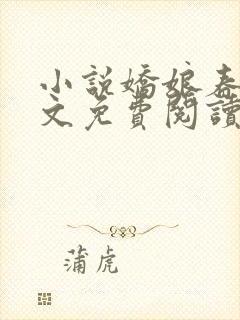 小說嬌娘春
文免費閱讀
蒲虎